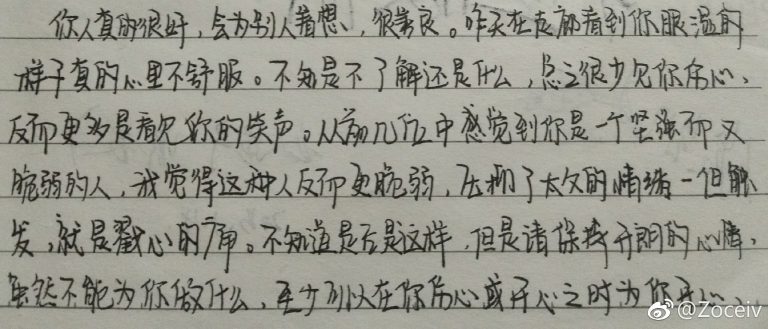 你人真的很好，会为别人着想，很善良。昨天在走廊看到你眼湿的
样子真的心里不舒服。不知是不了解还是什么，总之很少见你伤心，
反而更多是看见你的笑声。从前几位中感觉到你是一个坚强而又
脆弱的人，我觉得这种人反而更脆弱，压抑了太久的情绪一但触
发，就是戳心的痛。不知道是否是这样，但是请保持开朗的心情，
虽然不能为你做什么，至少可以在你伤心或开心之时为你
@Zoceiv